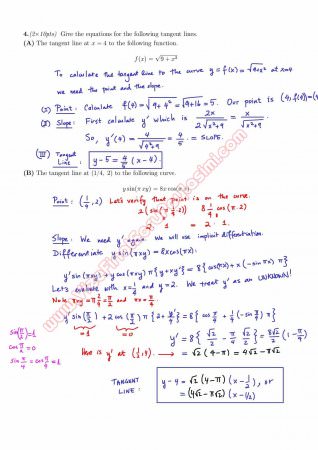 4.(2×10pts) Give the equations for the following tangent lines.
(A) The tangent line at x = 4 to the following function.
f(x) = √9 + x²
To calculate the tangent line to the curve y = f(x) = √9+x² at x=4
we need the point and the slope.
(I) Point: Calculate f(4) = √9 + 4² = √9+16 = 5. Our point is (4, f(4)) = (4
(II) Slope: First calculate y' which is 2x / 2√x²+9 = x / √x²+9.
So, y'(4) = 4 / √4²+9 = 4/5 = SLOPE.
(III) Tangent Line : y - 5 = 4/5 (x - 4).
(B) The tangent line at (1/4, 2) to the following curve.
y sin(π xy) = 8x cos(π x)
Point: (1/4, 2) Let's verify that point is on the curve.
Slope: We need y' again we will use implicit differentiation.
Differentiate y sin(πxy) = 8x cos(πx).
y' sin(πxy) + y cos(πxy) π{y + xy'} = 8{cos(πx) + x(-sin πx) π}
Let's evaluate with x = 1/4 and y = 2. We treat y' as an UNKNOWN!
sin(π/2)=1
cos π/2 = 0
sin π/4 = cos π/4
y' sin(π/2) + 2 cos(π/2) π {2 + y'/4} = 8{cos π/4 + 1/4 (-sin π/4) π}
=1 =0
TANGENT LINE :